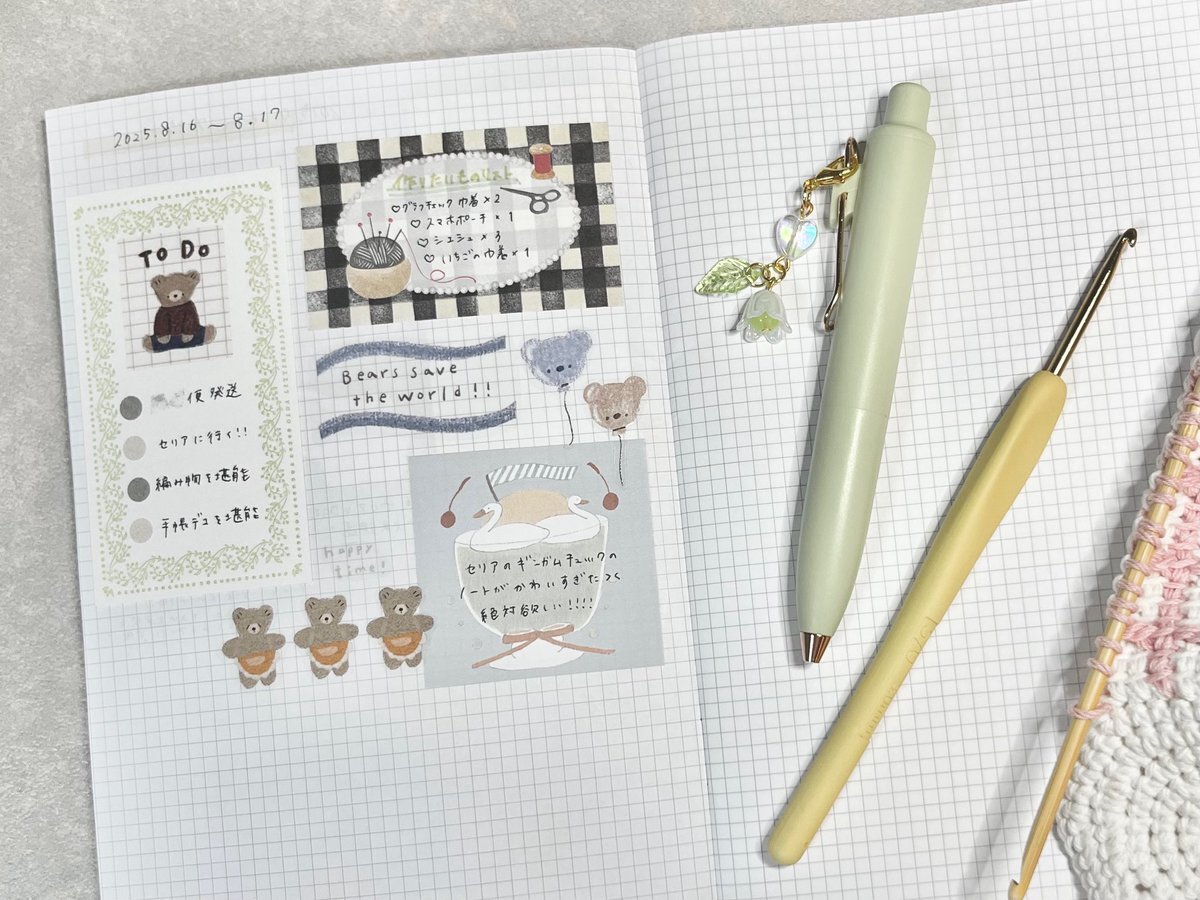 2025.8.16 〜 8.17
TO DO
便発送
セリアに行く!!
編み物を堪能
手帳デコを堪能
作りたいものリスト
♡グラフチェック巾着×2
♡スマホポーチ×1
♡シュシュ×3
♡いちごの巾着×1
Bears save
the world!!
happy
time!
セリアのギンガムチェックの
ノートがかわいすぎたっく
絶対欲しい!!!!